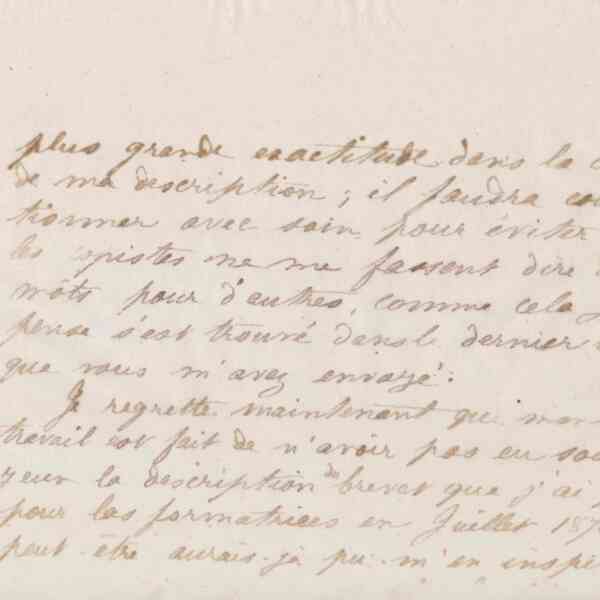 plus grande exactitude dans la
de ma description ; il faudra
tionner avec soin pour éviter
les copistes ne me fassent dire
mots pour d'autres, comme cela
pense s'est trouvé dans le dernier
que vous m'avez envoyé.
Je regrette maintenant que mon
travail est fait de n'avoir pas eu
yeux la description du brevet que j'ai
pour les formatrices en Juillet 187
peut être aurais-je pu m'en